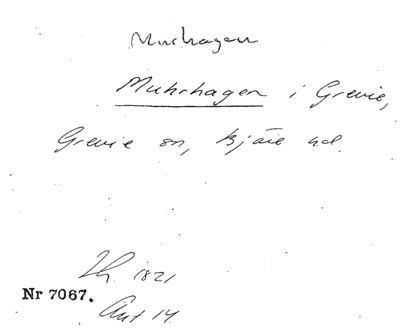 Murhagen
Muhrhagen i Grevie,
Grevie sn, Bjäre hd.
Lh. 1821
Nr 7067.
Akt 14